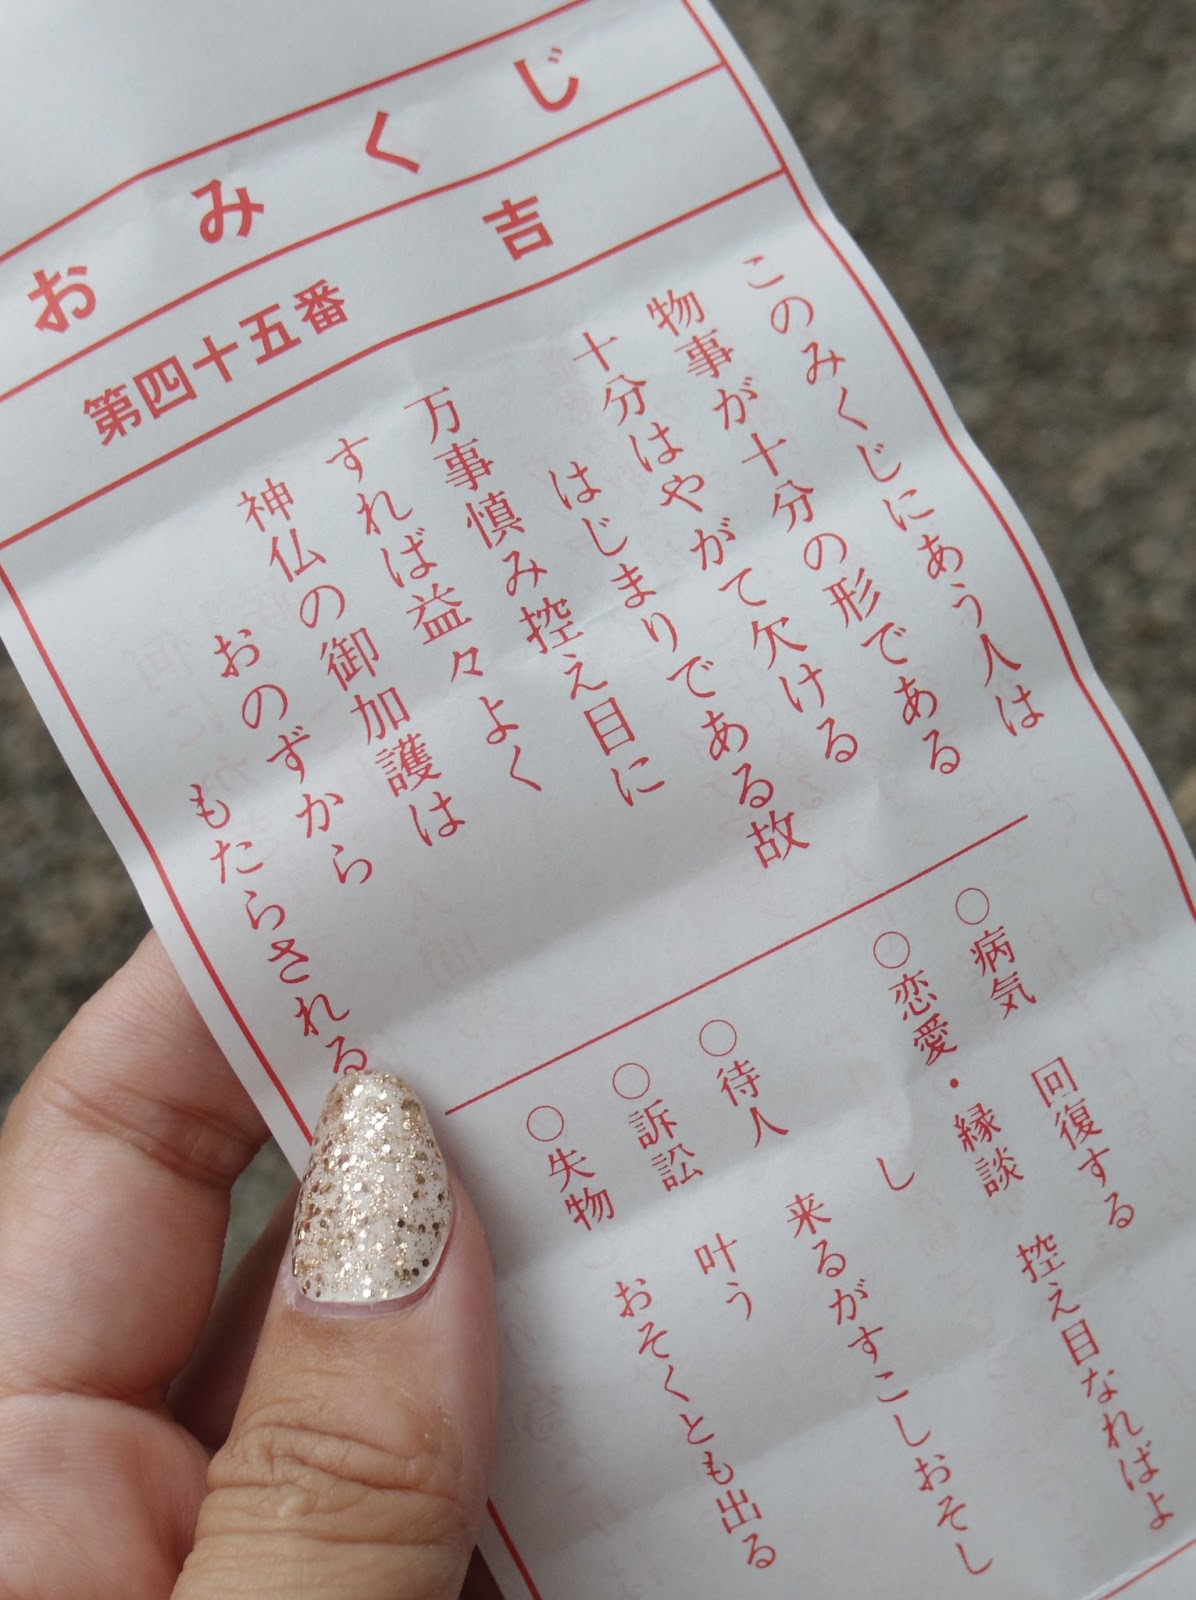 おみくじ
第四十五番 吉
このみくじにあう人は
物事が十分の形である
十分はやがて欠ける
はじまりである故
万事慎み控え目に
すれば益々よく
神仏の御加護は
おのずから
もたらされる
○病気 回復する
○恋愛・縁談 控え目なればよ
し
○待人 来るがすこしおそし
○訴訟 叶う
○失物 おそくとも出る